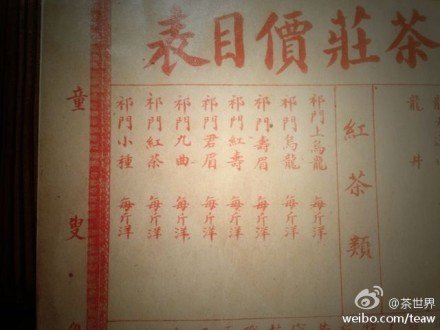 茶莊價目表
紅茶類
祁門上烏龍 每斤洋
祁門烏龍 每斤洋
祁門壽眉 每斤洋
祁門紅壽 每斤洋
祁門君眉 每斤洋
祁門九曲 每斤洋
祁門紅茶 每斤洋
祁門小種 每斤洋
童叟
@茶世界
weibo.com/teaw